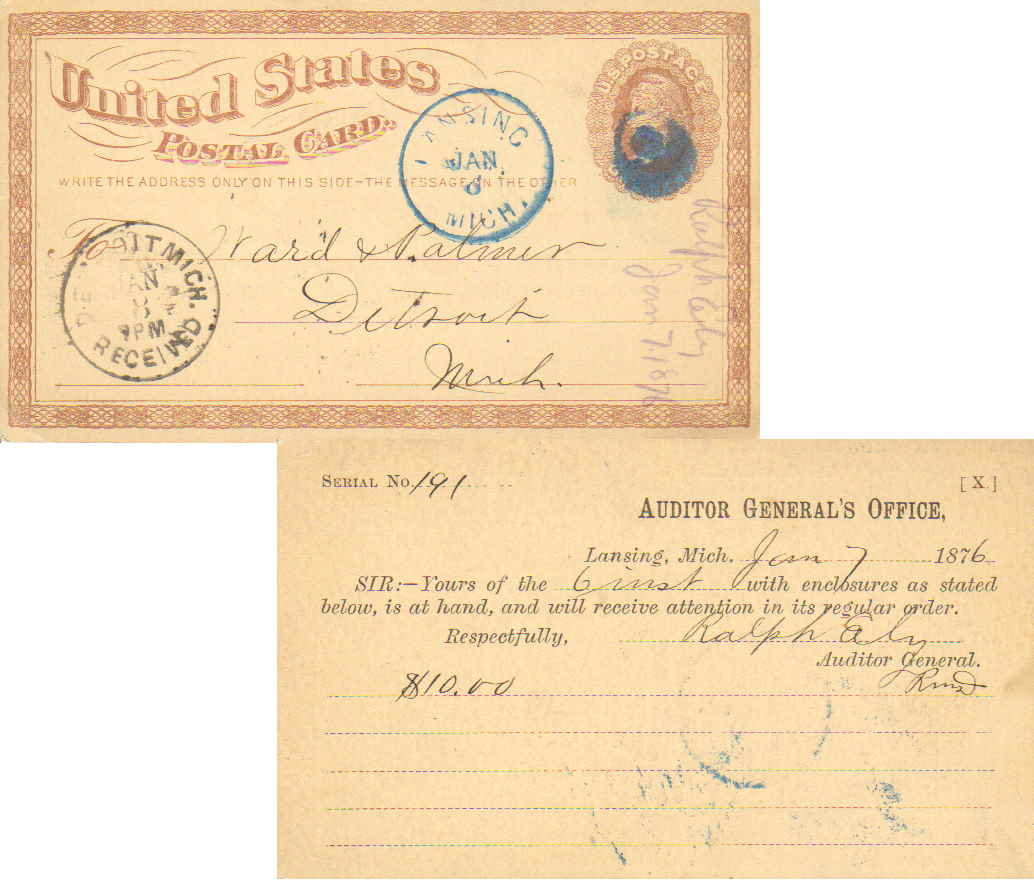 United States
POSTAL CARD.
U.S. POSTAGE
WRITE THE ADDRESS ONLY ON THIS SIDE—THE MESSAGE ON THE OTHER
LANSING
JAN.
8
MICH.
To Ward & Palmer
Detroit
Mich.
DETROIT MICH.
JAN
8
PM
RECEIVED
Ralph Ely
Jan 7. 1876
SERIAL No. 191
[X.]
AUDITOR GENERAL'S OFFICE,
Lansing, Mich. Jan 7 1876
SIR:—Yours of the 6 inst with enclosures as stated
below, is at hand, and will receive attention in its regular order.
Respectfully, Ralph Ely
Auditor General.
$10.00